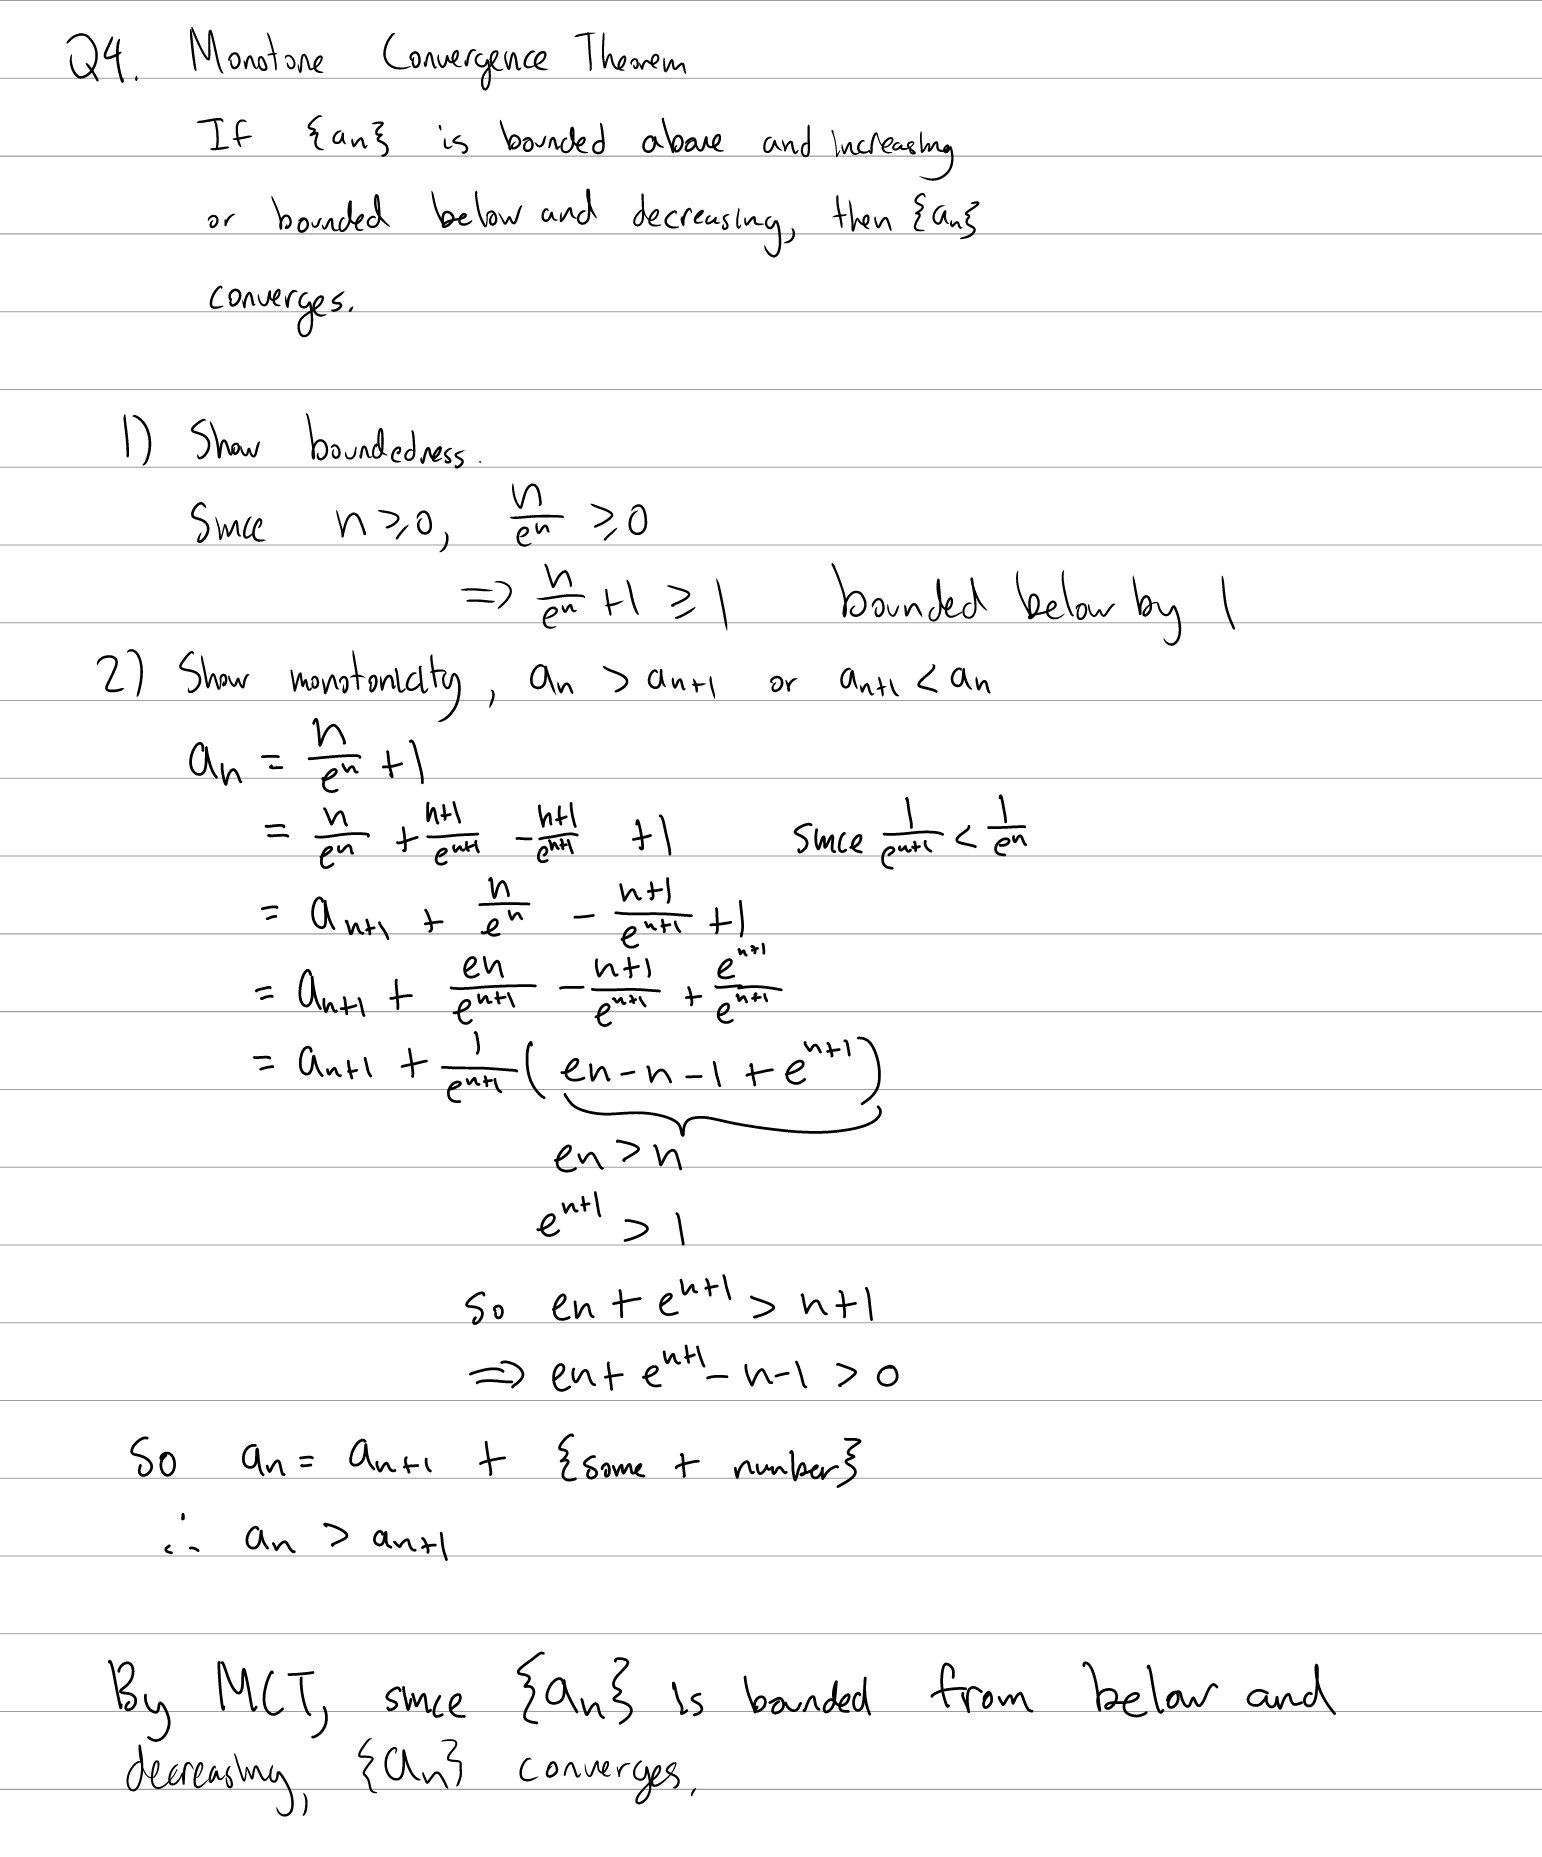 Q4. Monotone Convergence Theorem
If {an} is bounded above and increasing
or bounded below and decreasing, then {an}
converges.
1) Show boundedness.
Since n ≥ 0, n/e^n ≥ 0
=> n/e^n + 1 ≥ 1 bounded below by 1
2) Show monotonicity, a_n > a_n+1 or a_n+1 < a_n
a_n = n/e^n + 1
= n/e^n + (n+1)/e^(n+1) - (n+1)/e^(n+1) + 1 since 1/e^(n+1) < 1/e^n
= a_n+1 + n/e^n - (n+1)/e^(n+1) + 1
= a_n+1 + en/e^(n+1) - (n+1)/e^(n+1) + e^(n+1)/e^(n+1)
= a_n+1 + 1/e^(n+1) (en - n - 1 + e^(n+1))
en > n
e^(n+1) > 1
so en + e^(n+1) > n+1
=> en + e^(n+1) - n - 1 > 0
So a_n = a_n+1 + {some + number}
∴ a_n > a_n+1
By MCT, since {a_n} is bounded from below and
decreasing, {a_n} converges.